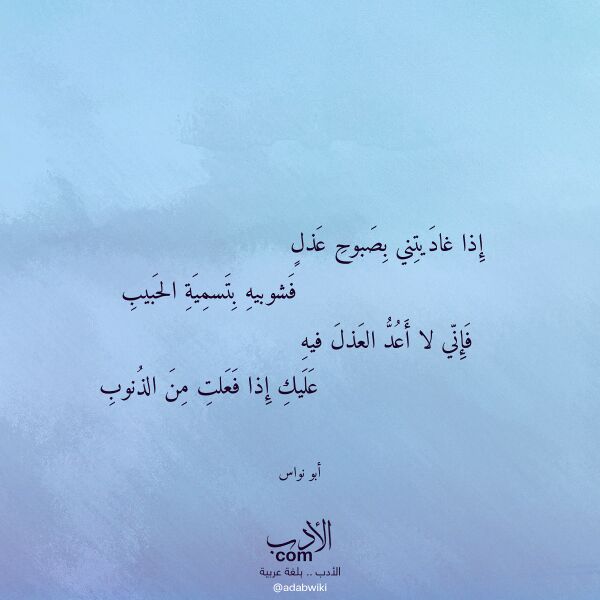 إِذا غادَيتِني بِصَبوحِ عَذلٍ
فَشوبيهِ بِتَسمِيَةِ الحَبيبِ
فَإِنّي لا أَعُدُّ العَذلَ فيهِ
عَلَيكِ إِذا فَعَلتِ مِنَ الذُنوبِ
أبو نواس
الأدب
com
الأدب .. بلغة عربية
@adabwiki